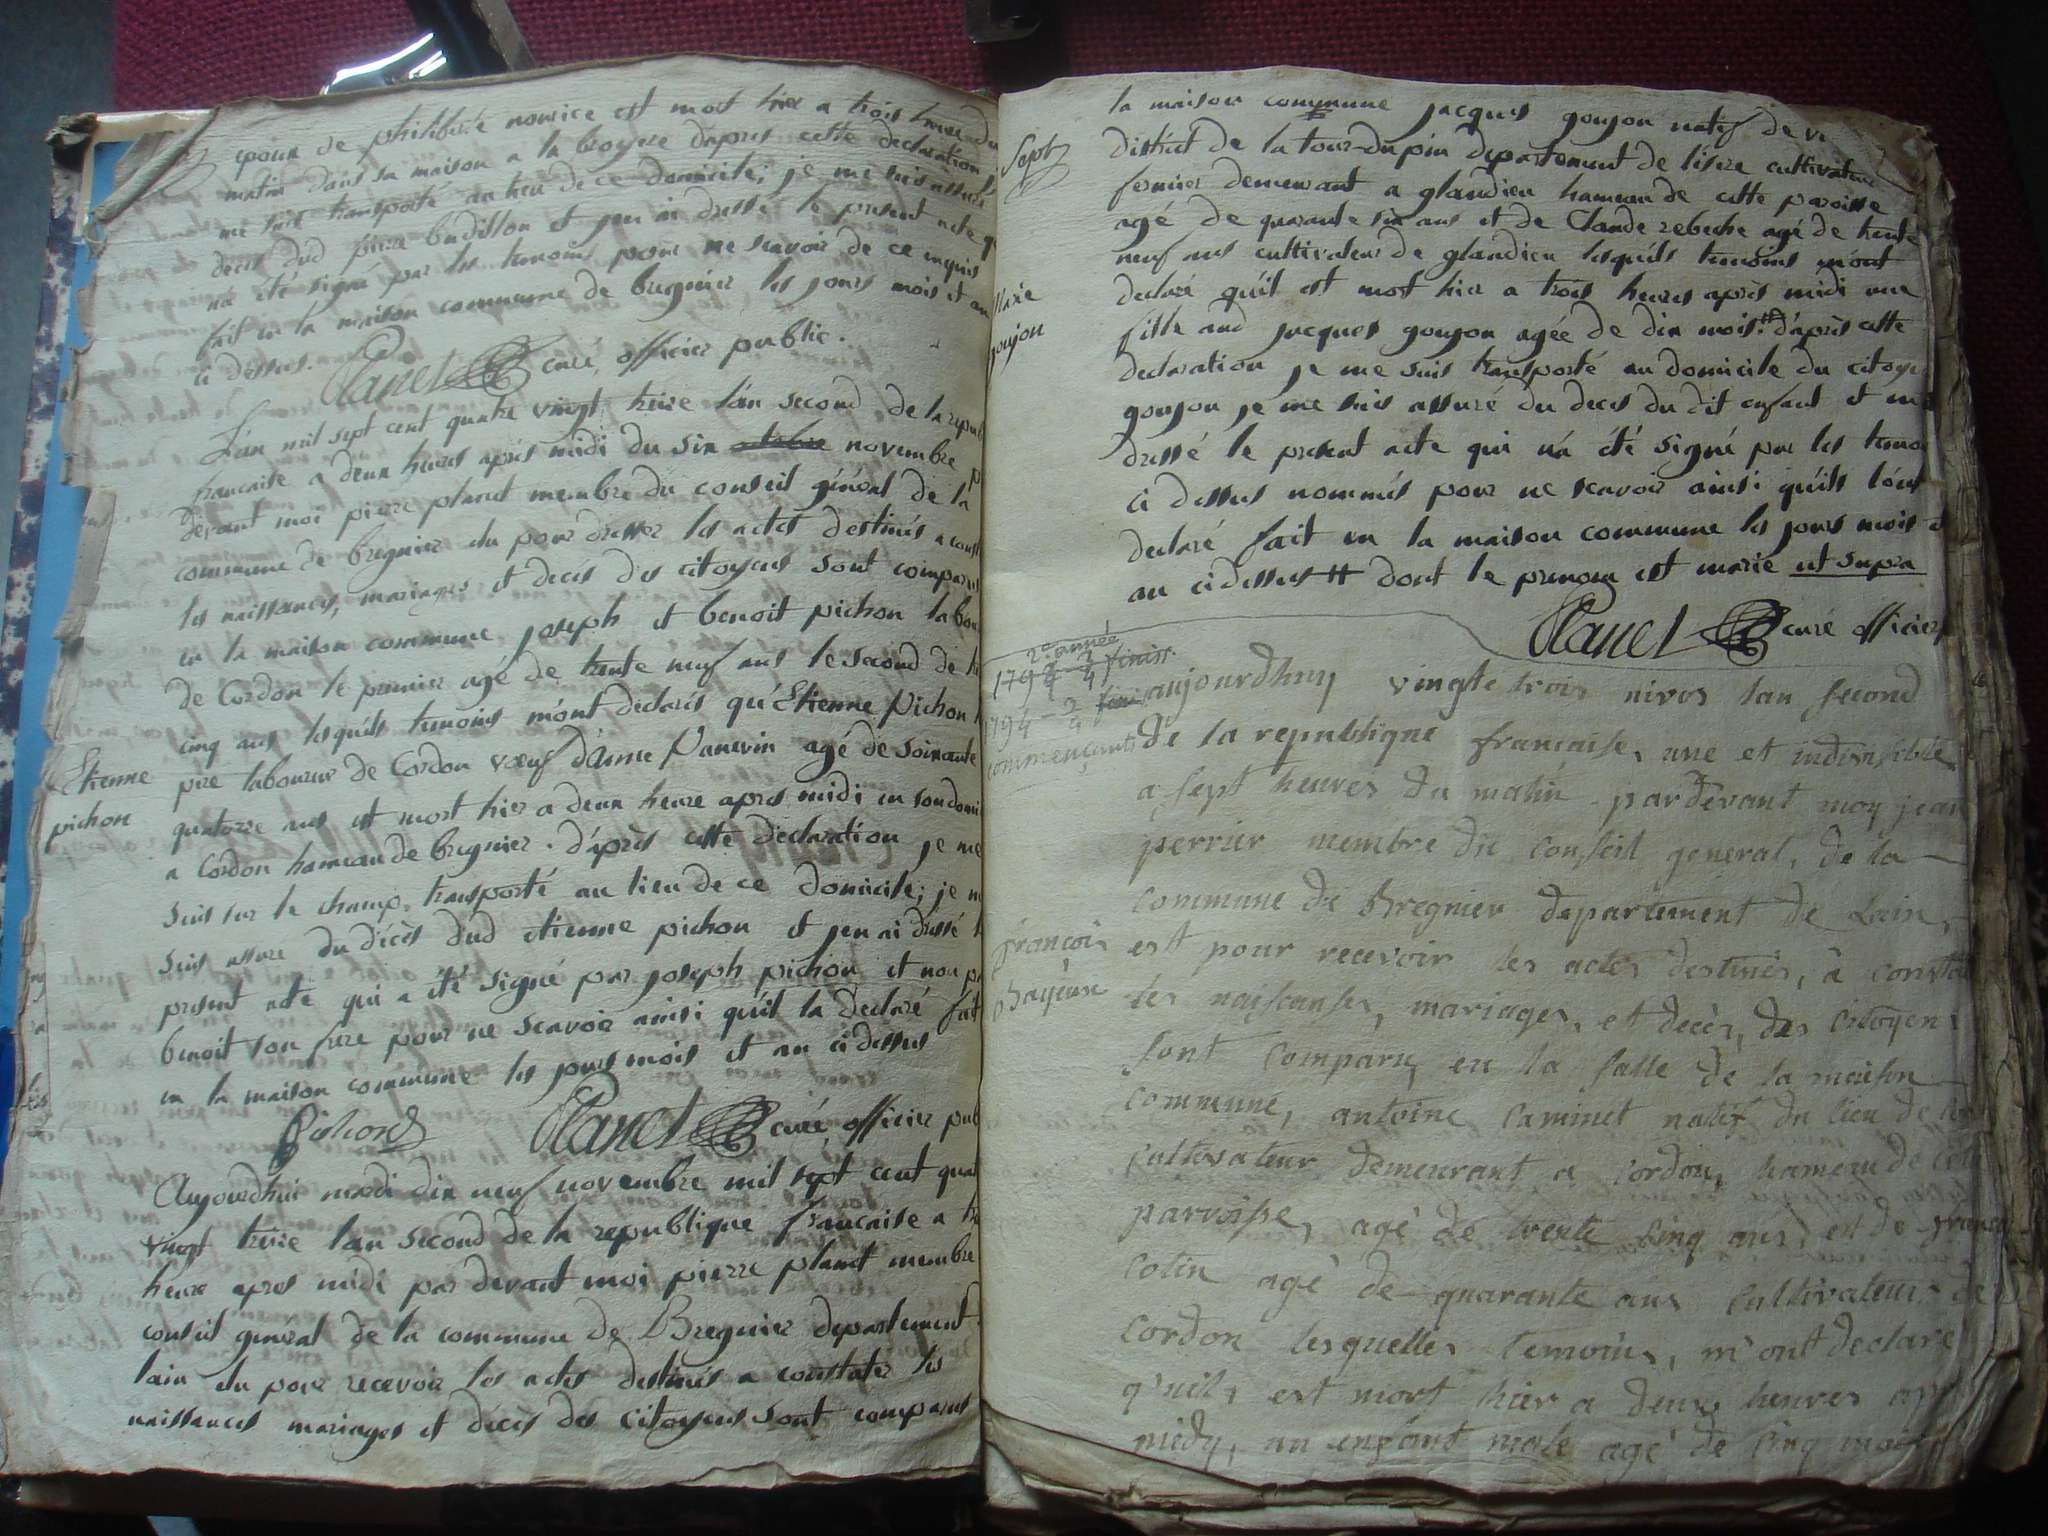 epoux de philiberte nourice est mort hier a trois heures du
matin dans sa maison a la broyere dapres cette declaration
me suis transporté au lieu de ce domicile; je me suis assuré
deces dud pierre budillon et jen ai dressé le present acte q
na été signé par les temoins pour ne scavoir de ce enquis
fait en la maison commune de bregnier les jours mois et an
ci dessus. Planet curé officier public.
Lan mil sept cent quatre vingt treize lan second de la repub
francaise a deux heures après midi du six octobre novembre p
devant moi pierre planet membre du conseil général de la
commune de bregnier elu pour dresser les actes destinés a const
les naissances, mariages et deces des citoyens sont comparus
en la maison commune joseph et benoit pichon labou
de Cordon le premier agé de trente neuf ans le second de tr
cinq ans lesquels temoins mont declarés qu'Etienne Pichon l
Etienne pichon
pere laboureur de Cordon voeuf danne Panevin agé de soixante
quatorze ans est mort hier a deux heure apres midi en son domi
a Cordon hameau de bregnier. d'après cette declaration je me
suis sur le champ transporté au lieu de ce domicile; je m
suis assure du décès dud etienne pichon et jen ai dressé l
present acte qui a été signé par joseph pichon et non pa
benoit son frere pour ne scavoir ainsi quil la declaré fait
en la maison commune les jours mois et an ci dessus
Pichond Planet curé officier pub
Aujourdhui mardi dix neuf novembre mil sept cent quat
vingt treize lan second de la republique francaise a tr
heure apres midi par devant moi pierre planet membre
conseil general de la commune de Bregnier departement
lain elu pour recevoir les actes destinés a constater les
naissances mariages et décès des citoyens sont comparus
la maison commune jacques goujon natif de v
Sept
district de la tour-dupin departement de lisere cultivateur
fermier demeurant a glandieu hameau de cette paroisse
agé de quarante six ans et de Claude rebeche agé de trente
neuf ans cultivateur de glandieu lesquels temoins m'ont
declaré qu'il est mort hier a trois heures après midi une
Marie goujon
fille aud jacques goujon agée de dix mois # d'après cette
declaration je me suis transporté au domicile du citoye
goujon je me suis assuré du deces du dit enfant et en
dressé le present acte qui n'a été signé par les temo
ci dessus nommés pour ne scavoir ainsi qu'ils l'ont
declaré fait en la maison commune les jours mois e
an ci dessus # dont le prenom est marie ut supra
Planet curé officier
2e année
finiss.
commençant
aujourdhuy vingte trois nivos lan second
de la republique francaise, une et indivisible
a sept heures du matin pardevant moy jean
perrier membre du Conseil general, de la
commune de Bregnier departement de Lain,
françois Bayeux
est pour recevoir les actes destinés, à consta
les naissanses, mariages, et decès, des citoyens
sont comparu, en la salle de la maison
commune, antoine Caminet natif du lieu de
cultivateur demeurant a Cordon, hameau de cette
parroisse, agé de trente cinq ans, est de franc
Colin agé de quarante ans Cultivateur de
Cordon lesquelles temoins, m'ont declaré
qu'ils est mort hier a deux heures ap
miedy, un enfant male agé de cinq mois